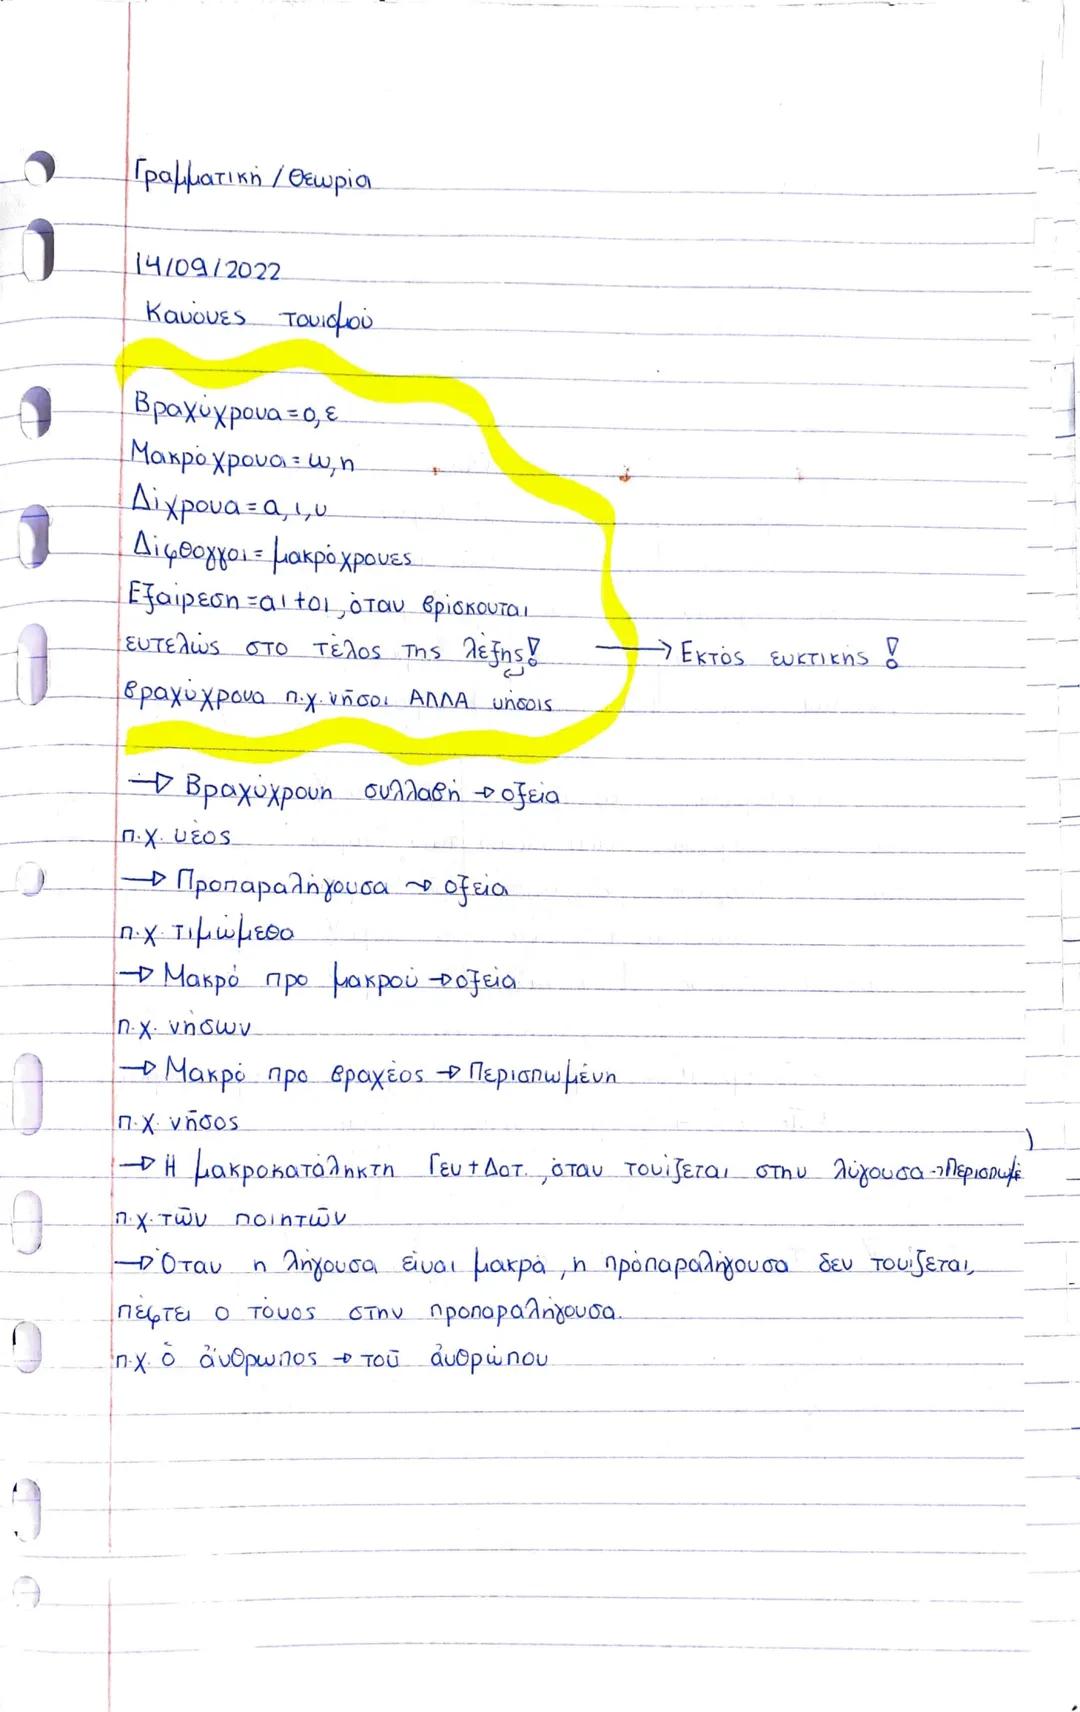 Γραμματική / Θεωρία
14/09/2022
Κανόνες τονισμού
Βραχύχρονα = ο, ε
Μακρόχρονα = ω, η
Δίχρονα = α, ι, υ
Δίφθογγοι = μακρόχρονες
Εξαίρεση = αι + οι, όταν βρίσκονται
εντελώς στο τέλος της λέξης! → Εκτός ευκτικής!
βραχύχρονα π.χ. νῆσοι ΑΛΛΑ νήσοις
→ Βραχύχρονη συλλαβή → οξεία
π.χ. νέος
→ Προπαραλήγουσα → οξεία
π.χ. τιμώμεθα
→ Μακρό προ μακρού → οξεία
π.χ. νήσων
→ Μακρό προ βραχέος → Περισπωμένη
π.χ. νῆσος
→ Η μακροκατάληκτη Γεν + Δοτ., όταν τονίζεται στην λύγουσα → Περισπωμέ
π.χ. τῶν ποιητῶν
→ Όταν η λήγουσα είναι μακρά, η πρόπαραλήγουσα δεν τονίζεται,
πέφτει ο τόνος στην προπαραλήγουσα.
π.χ. ὁ ἄνθρωπος → τοῦ ἀνθρώπου